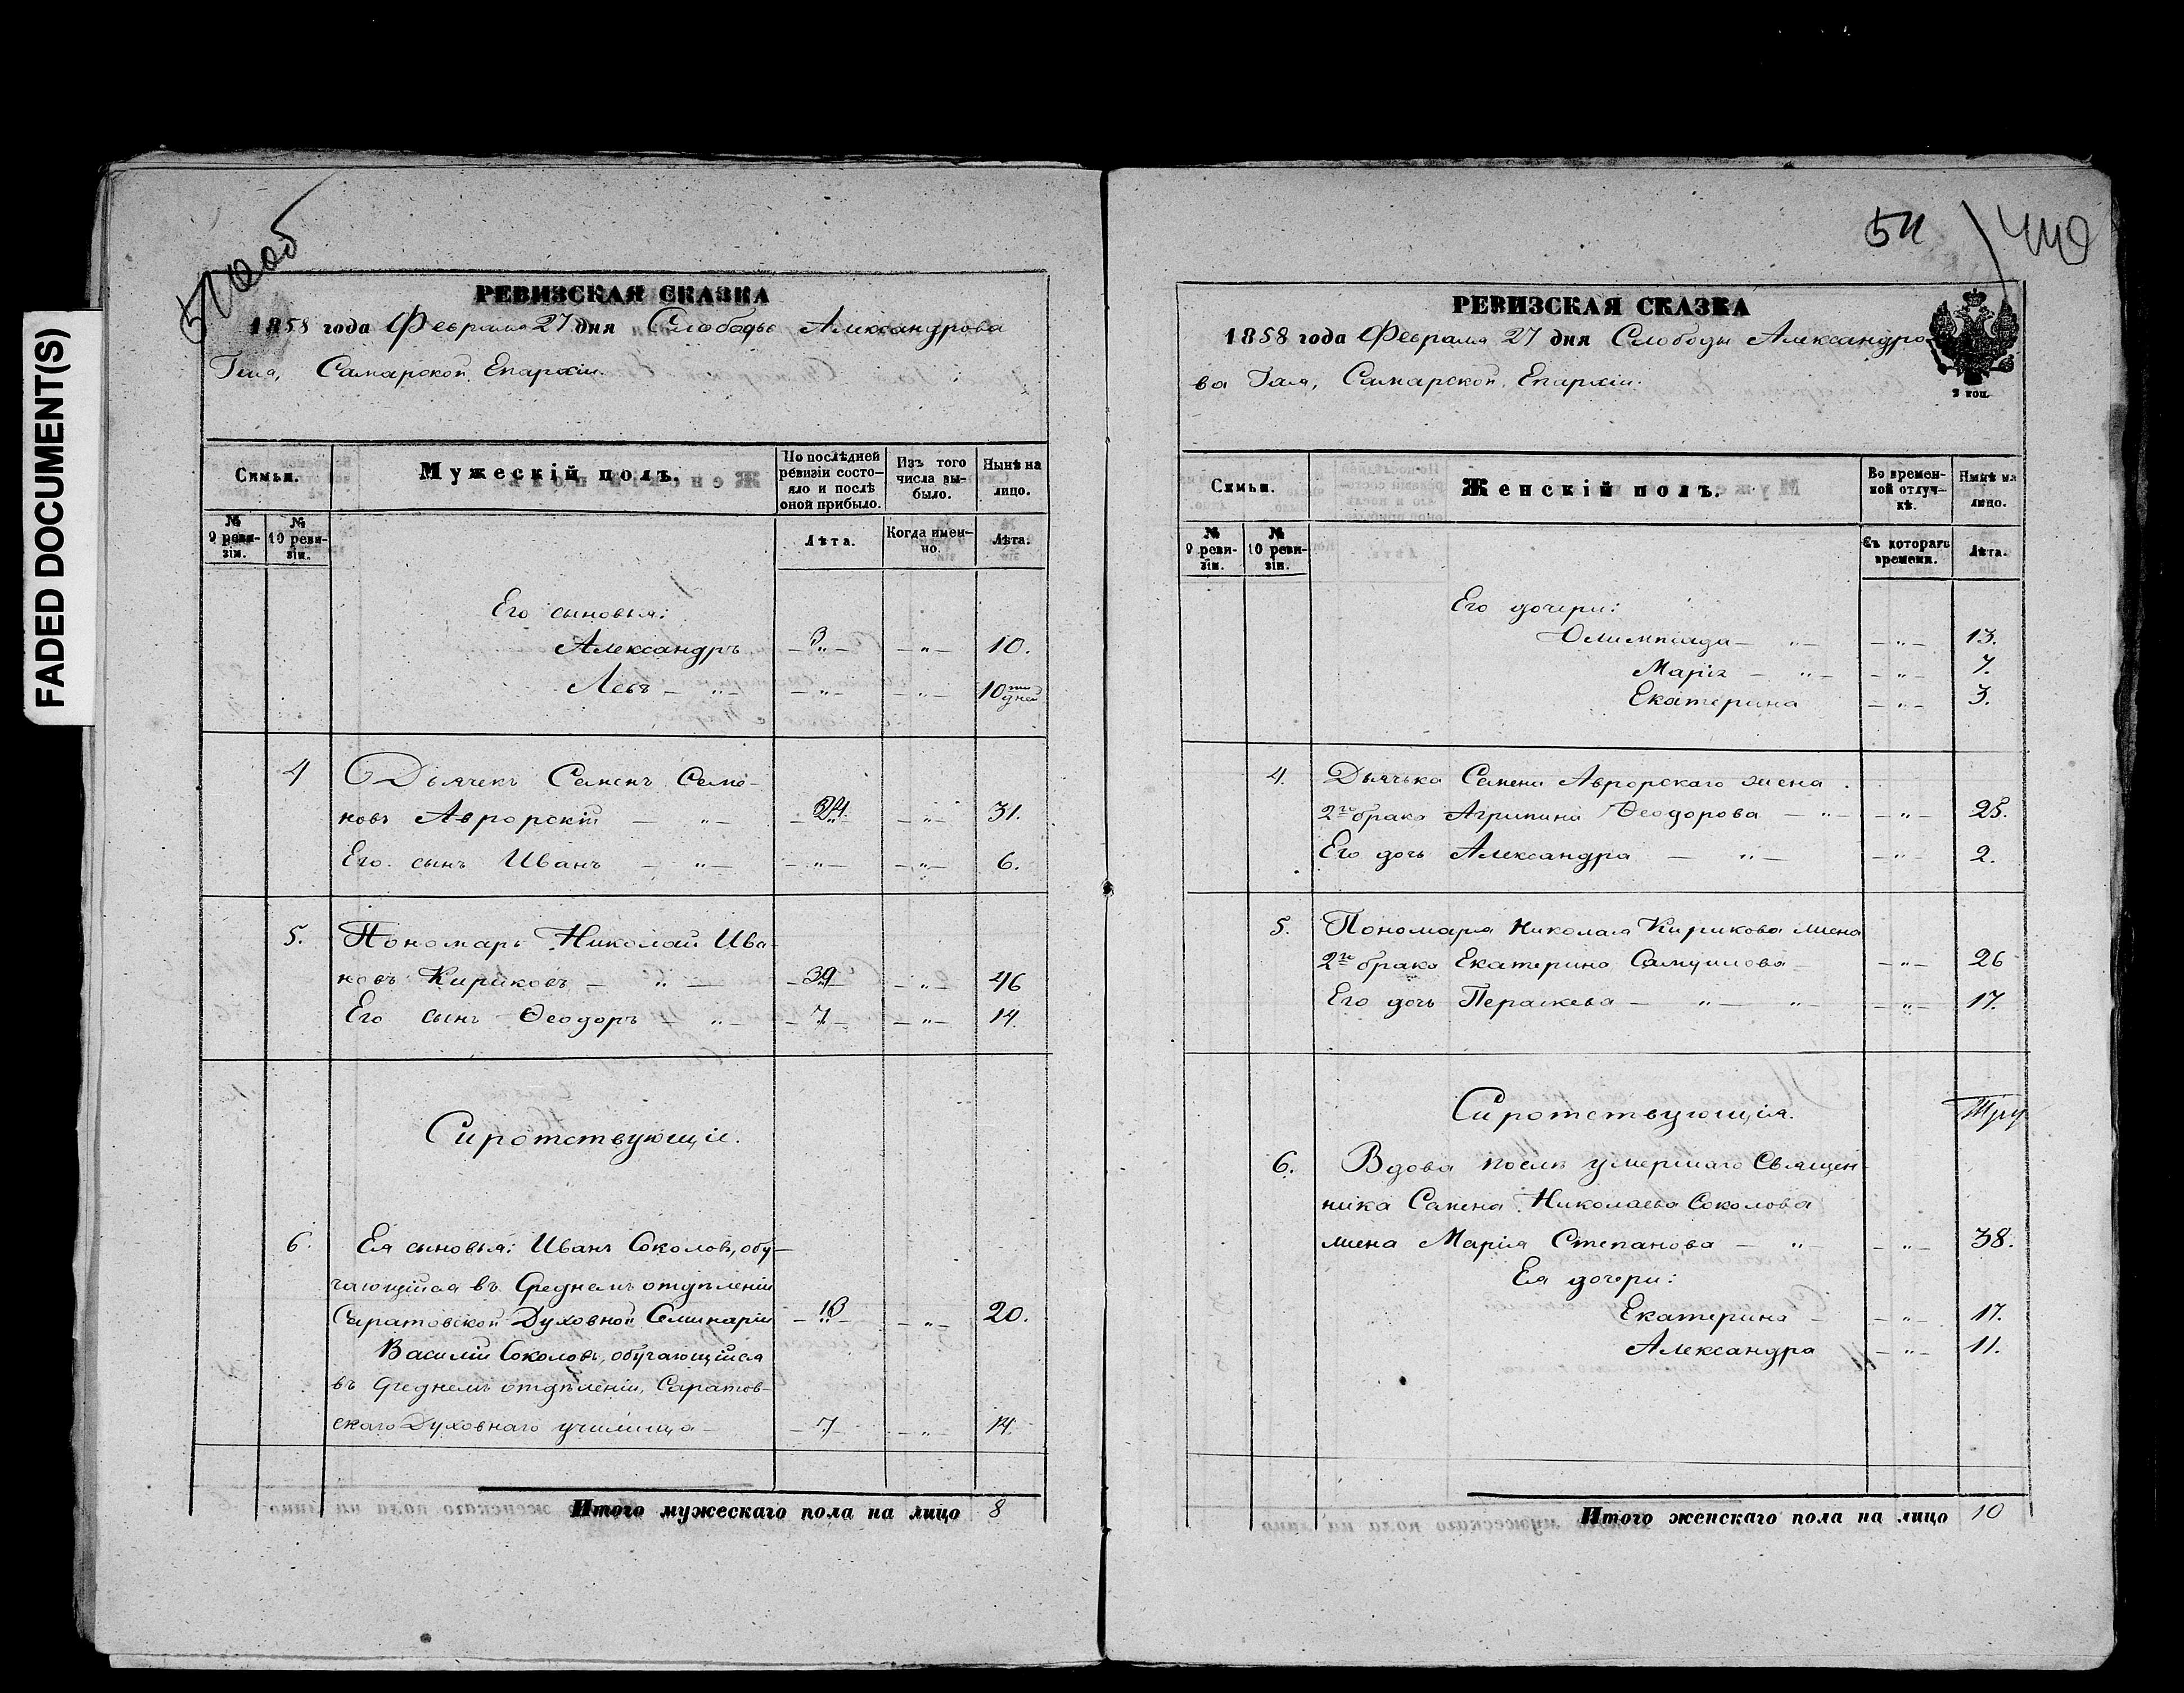 FADED DOCUMENT(S)
РЕВИЗСКАЯ СКАЗКА
1858 года Февраля 27 дня Слободы Александрова
Гая, Самарской Епархіи.
Симьи.
Мужескій полъ.
По послѣдней ревизіи состо-
яло и послѣ оной прибыло.
Изъ того числа вы-
было.
Нынѣ на лицо.
№ 9 реви-
зіи.
№ 10 реви-
зіи.
Лѣта.
Когда имен-
но.
Лѣта.
Его сыновья:
Александръ 3 " 10.
Левъ — " — " — " 10ти дней
4 Дьячекъ Семенъ Семе-
новъ Аврорскій — " — 24. " 31.
Его сынъ Иванъ — " — " — " 6.
5. Пономарь Николай Ива-
новъ Кириковъ — " — 39 " 46
Его сынъ Ѳеодоръ — " — 7 " 14.
Сиротствующіе.
6. Ея сыновья: Иванъ Соколовъ, обу-
чающійся въ Среднемъ отдѣленіи
Саратовской Духовной Семинаріи 13 " 20.
Василій Соколовъ, обучающійся
въ Среднемъ отдѣленіи, Саратов-
скаго Духовнаго училища — 7 " 14.
Итого мужескаго пола на лицо 8
440
РЕВИЗСКАЯ СКАЗКА
1858 года Февраля 27 дня Слободы Александро-
ва Гая, Самарской Епархіи.
2 коп.
Симьи.
Женскій полъ.
Во времен-
ной отлуч-
кѣ.
Нынѣ на лицо.
№ 9 реви-
зіи.
№ 10 реви-
зіи.
Съ котораго времени.
Лѣта.
Его дочери:
Олимпіада — " — " 13.
Марія — " — " 7.
Екатерина — " — 3.
4. Дьячька Семена Аврорскаго жена
2го брака Агрипина Ѳеодорова — " — " 25.
Его дочь Александра — " — " 2.
5. Пономаря Николая Кирикова жена
2го брака Екатерина Самуилова — " — 26
Его дочь Параскева — " — " — " 17.
Сиротствующія.
6. Вдова послѣ умершаго Священ-
ника Семена Николаева Соколова
жена Марія Степанова — " — " 38.
Ея дочери:
Екатерина — " — 17.
Александра — " — 11.
Итого женскаго пола на лицо 10